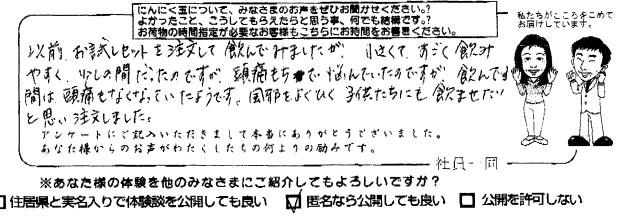 にんにく玉について、みなさまのお声をぜひお聞かせください。?
よかったこと、こうしてもらえたらと思う事、何でも結構です。?
お荷物の時間指定が必要なお客様もこちらにお時間をお書きください。
私たちがこころをこめて
お届けしています。
以前、お試しセットを注文して飲んでみましたが、小さくて、すごく飲み
やすく、少しの間だったのですが、頭痛もちで悩んでいたのですが、飲んでる
間は頭痛もなくなっていたようです。風邪をよくひく子供たちにも飲ませたい
と思い注文しました。
アンケートにご記入いただきまして本当にありがとうございました。
あなた様からのお声がわたくしたちの何よりの励みです。
社員一同
※あなた様の体験を他のみなさまにご紹介してもよろしいですか?
住居県と実名入りで体験談を公開しても良い 匿名なら公開しても良い 公開を許可しない